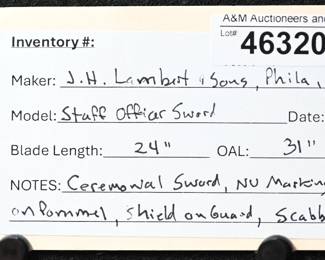 A&M Auctioneers and
Lot# 46320
Inventory #:
Maker: J.H. Lambert & Sons, Phila,
Model: Staff Officer Sword Date:
Blade Length: 24" OAL: 31"
NOTES: Ceremonial Sword, NU Marking
on Pommel, Shield on Guard, Scabb